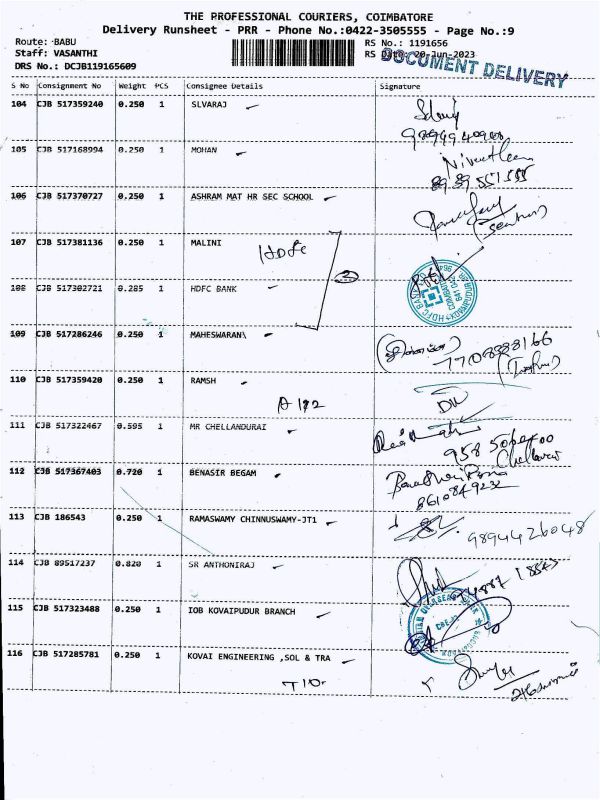 THE PROFESSIONAL COURIERS, COIMBATORE
Delivery Runsheet - PRR - Phone No.:0422-3505555 - Page No.:9
Route: BABU RS No.: 1191656
Staff: VASANTHI RS Date: 20-Jun-2023
DRS No.: DCJB119165609
DOCUMENT DELIVERY
S No Consignment No Weight PCS Consignee Details Signature
104 CJB 517359240 0.250 1 SLVARAJ
105 CJB 517168994 0.250 1 MOHAN
106 CJB 517370727 0.250 1 ASHRAM MAT HR SEC SCHOOL
107 CJB 517381136 0.250 1 MALINI
Hdfc
108 CJB 517302721 0.285 1 HDFC BANK
2
109 CJB 517286246 0.250 1 MAHESWARAN\
7708888166
110 CJB 517359420 0.250 1 RAMSH
A 192
111 CJB 517322467 0.595 1 MR CHELLANDURAI
112 CJB 517367403 0.720 1 BENASIR BEGAM
8610849232
113 CJB 186543 0.250 1 RAMASWAMY CHINNUSWAMY-JT1
9894426048
114 CJB 89517237 0.820 1 SR ANTHONIRAJ
115 CJB 517323488 0.250 1 IOB KOVAIPUDUR BRANCH
116 CJB 517285781 0.250 1 KOVAI ENGINEERING ,SOL & TRA